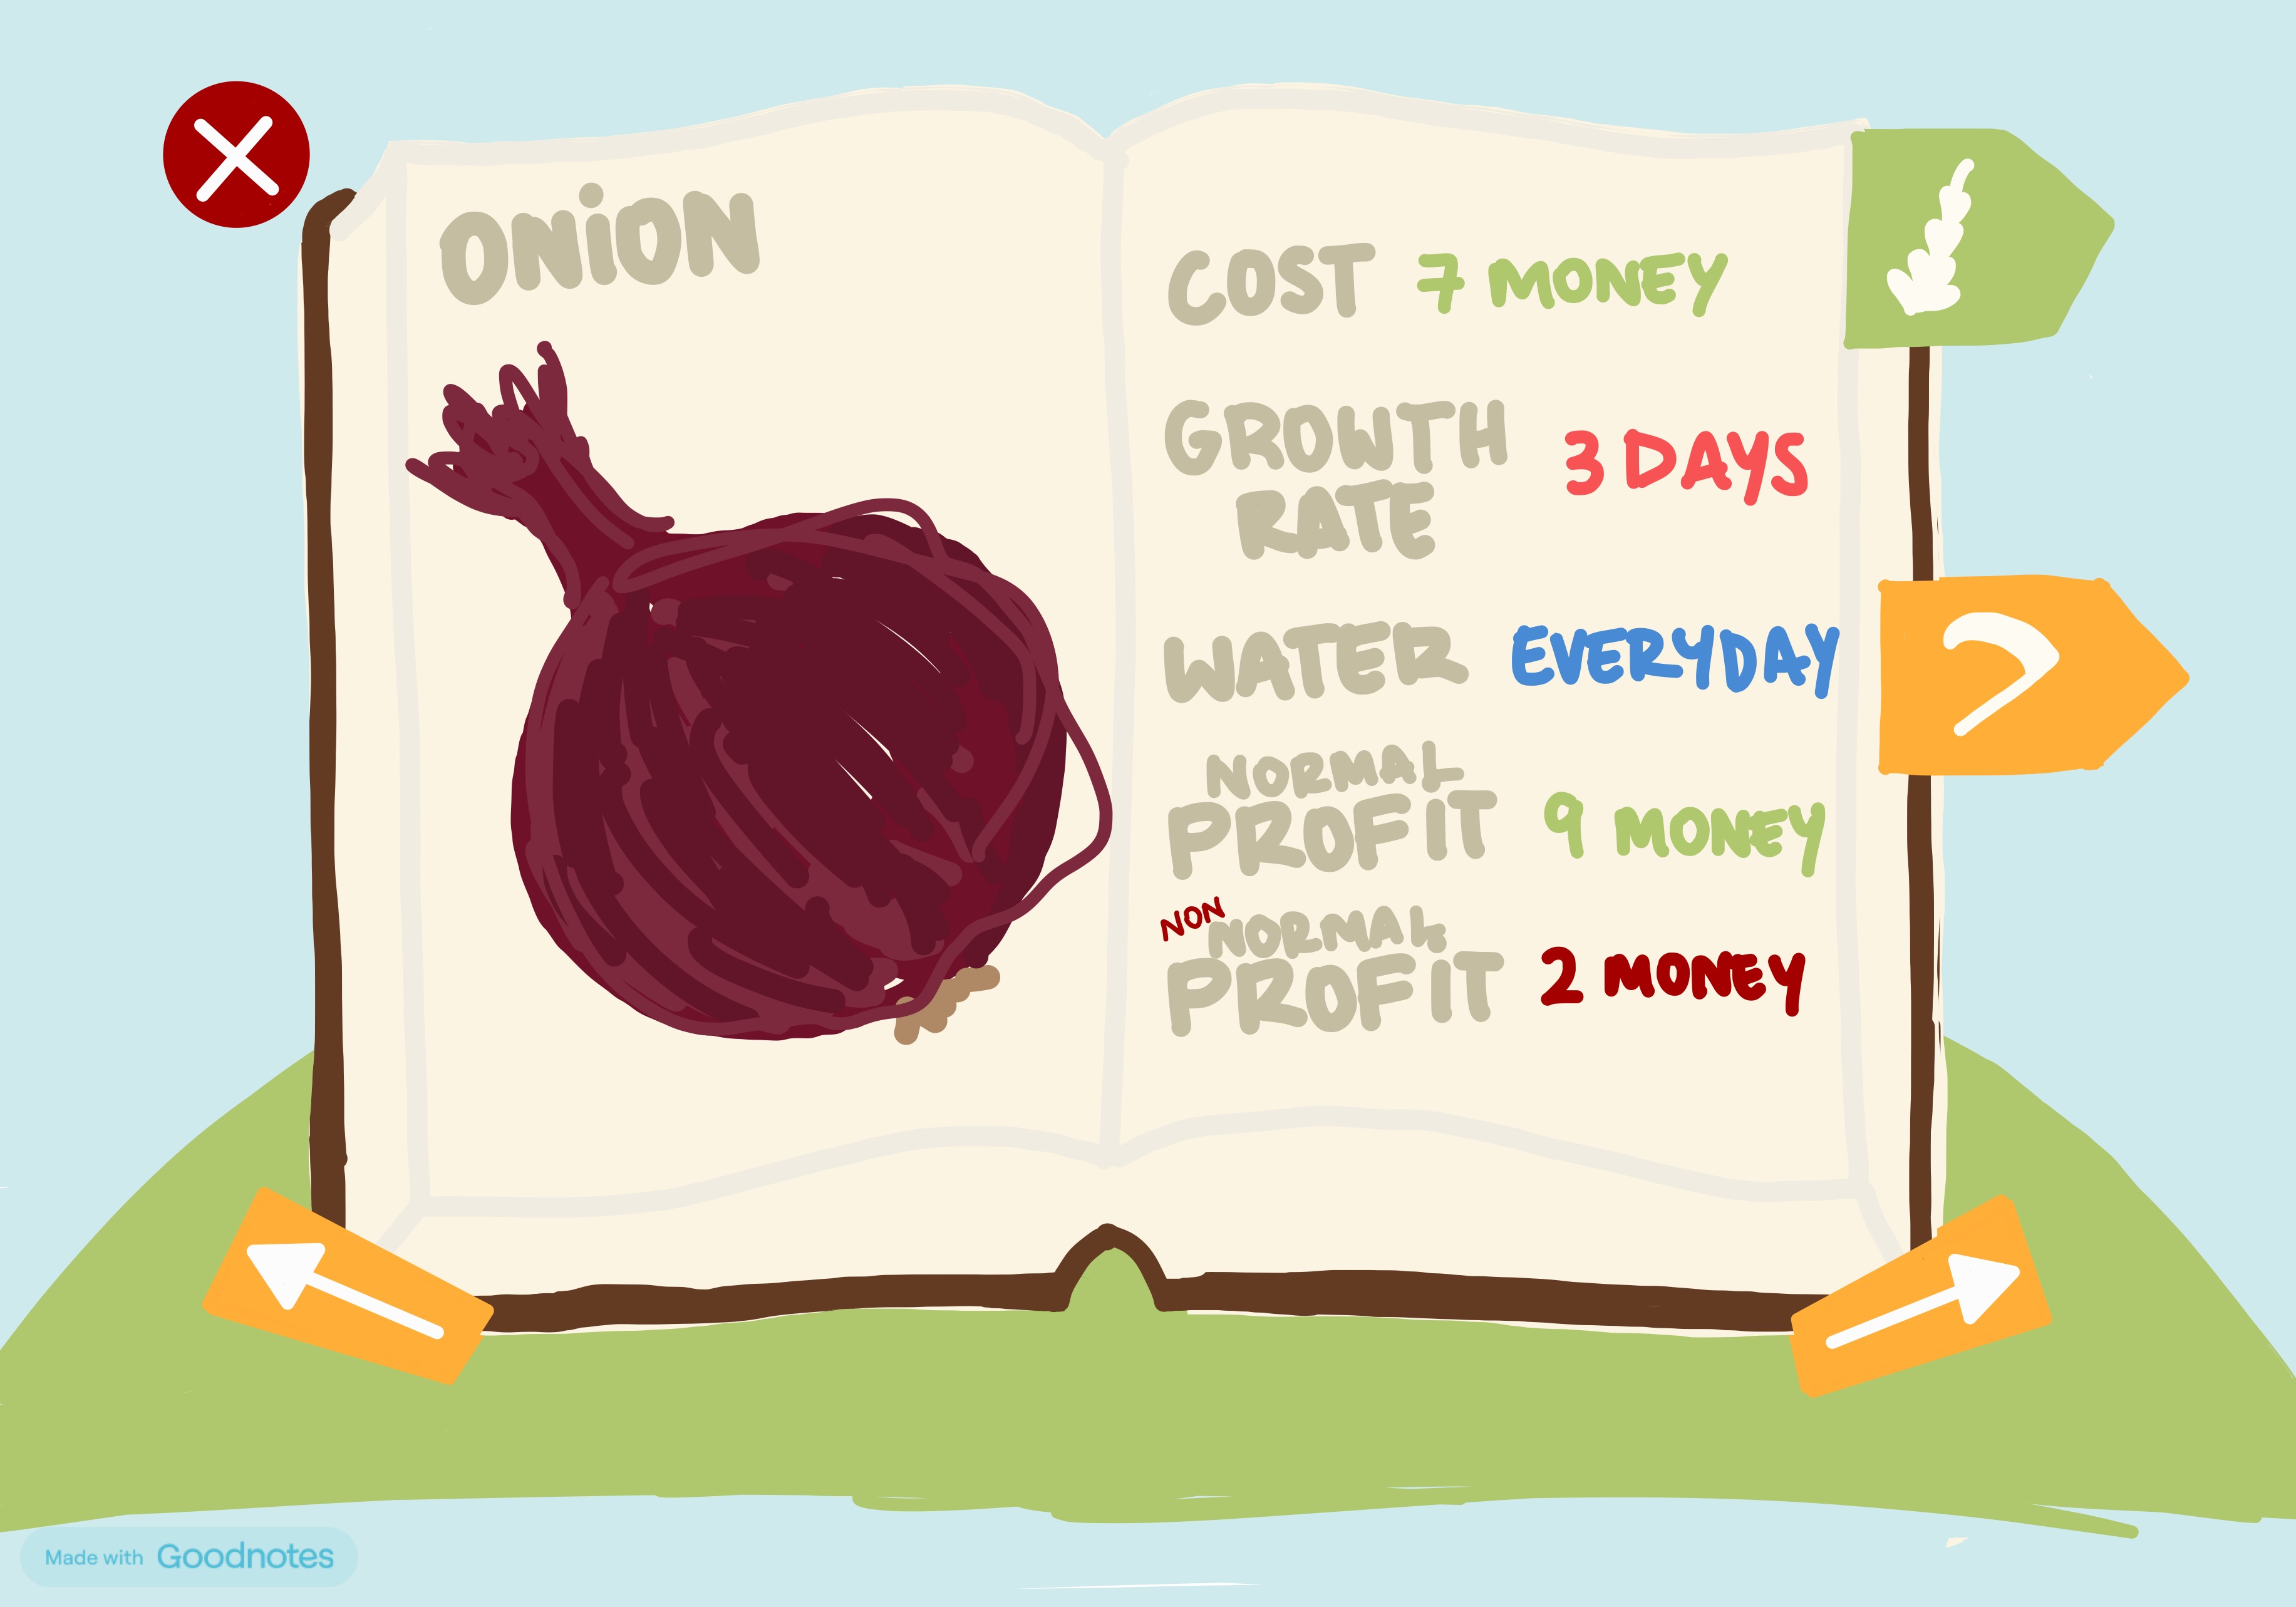 ONiON
COST 7 MONEY
GROWTH
RATE
3 DAYS
WATER EVERYDAY
NORMAL
PROFIT 9 MONEY
NON
NORMAL
PROFIT 2 MONEY
Made with Goodnotes